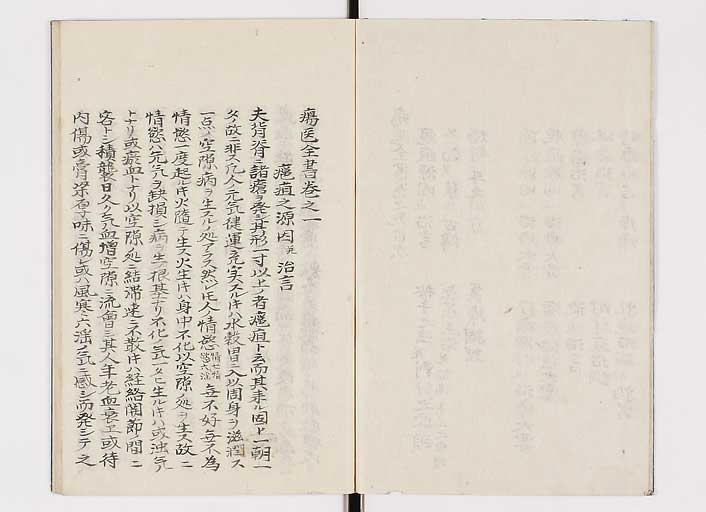 瘍医全書巻之一
癰疽之源因 并 治言
夫背脊ニ諸瘡ヲ発シ其形一寸以上ノ者癰疽ト云而其来ル固ト一朝一
夕ノ故ニ非ス凡人元気健運充実スル片ハ水穀胃ニ入以周身ヲ滋潤ス
一点ノ空隙病ヲ生スルノ処アラス然レ氏人情慾 情七情 慾六淫 毎不好毎不為
情慾一度起ル片火随テ生ス火生片ハ身中不化以空隙ノ処ヲ生ス故ニ
情慾ハ元気ヲ缺損シ病ヲ生ノ根基ナリ不化ノ気一タヒ生ル片ハ或濁気
トナリ或瘀血トナリ以空隙処ニ結滞速ニ不散片ハ経絡関節ノ間ニ
客トシ積襲日久シク気血増空隙ニ流會シ其人年老血衰エ或待
内傷或膏梁厚味ニ傷レ或ハ風寒六淫ノ気ニ感シ而発シテ之